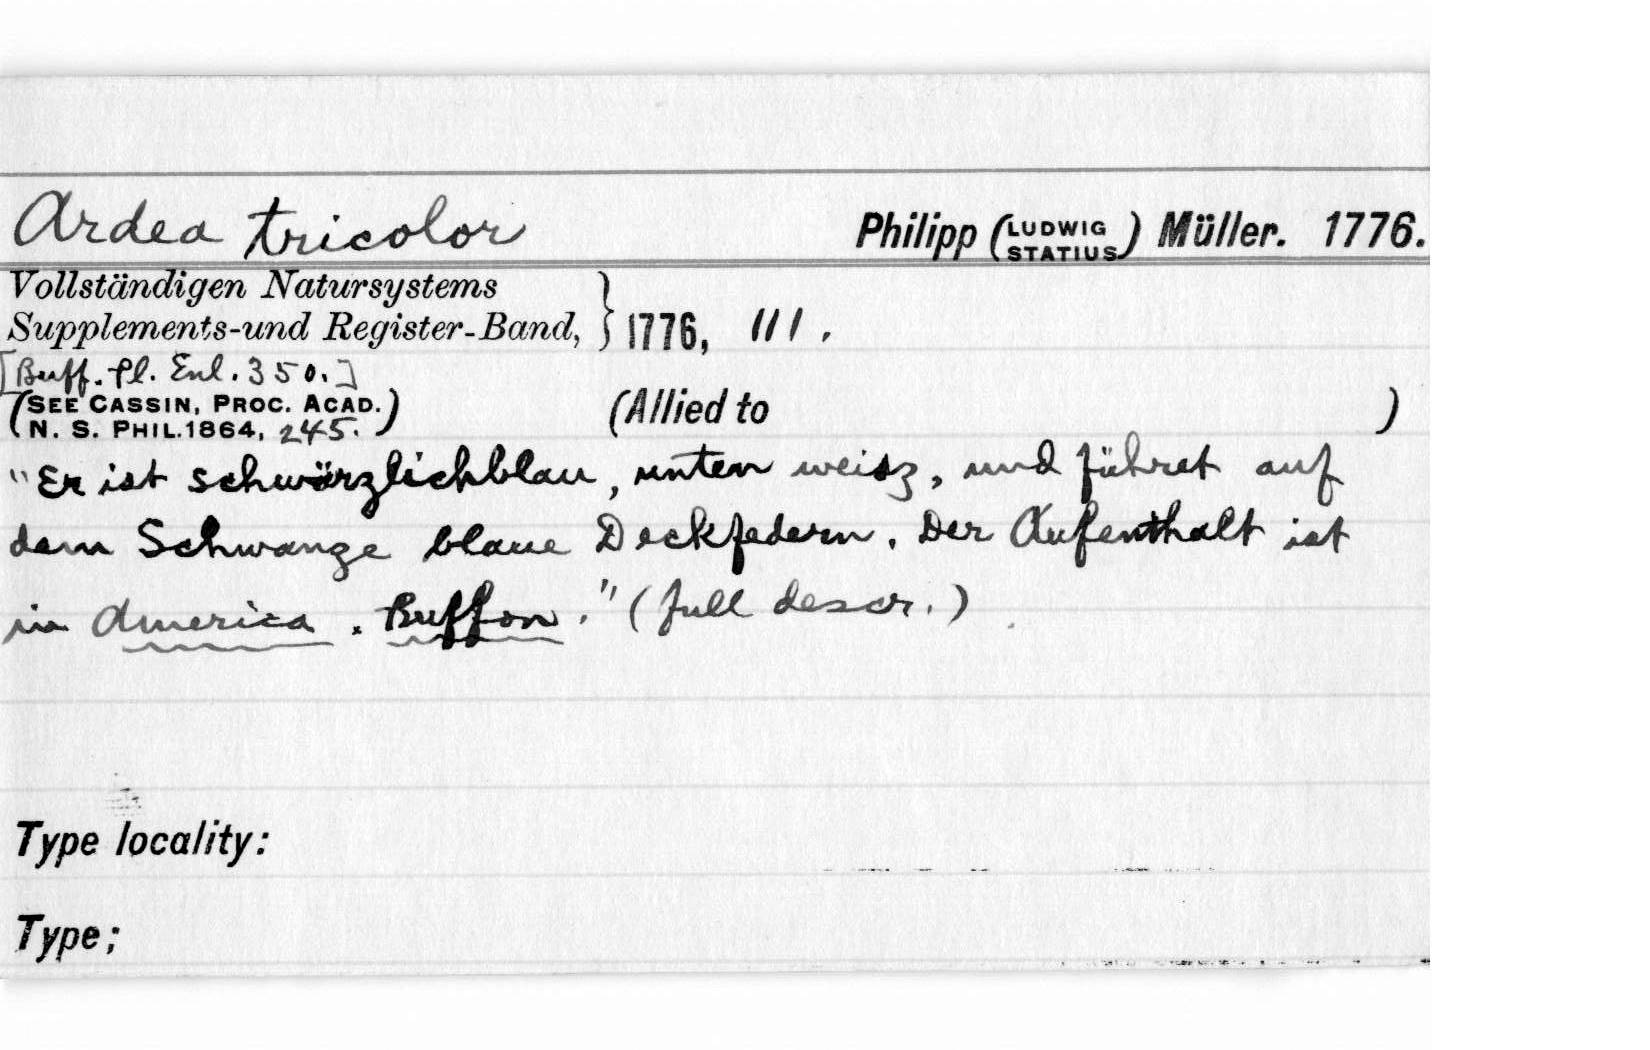 Ardea tricolor Philipp (LUDWIG STATIUS) Müller. 1776.
Vollständigen Natursystems
Supplements-und Register-Band, } 1776, 111.
[Buff. Pl. Enl. 350.]
(SEE CASSIN, PROC. ACAD.
N. S. PHIL. 1864, 245.) (Allied to )
"Er ist schwärzlichblau, unten weisz, und führet auf
dem Schwanze blaue Deckfedern. Der Aufenthalt ist
in America. Buffon." (full descr.)
Type locality:
Type;